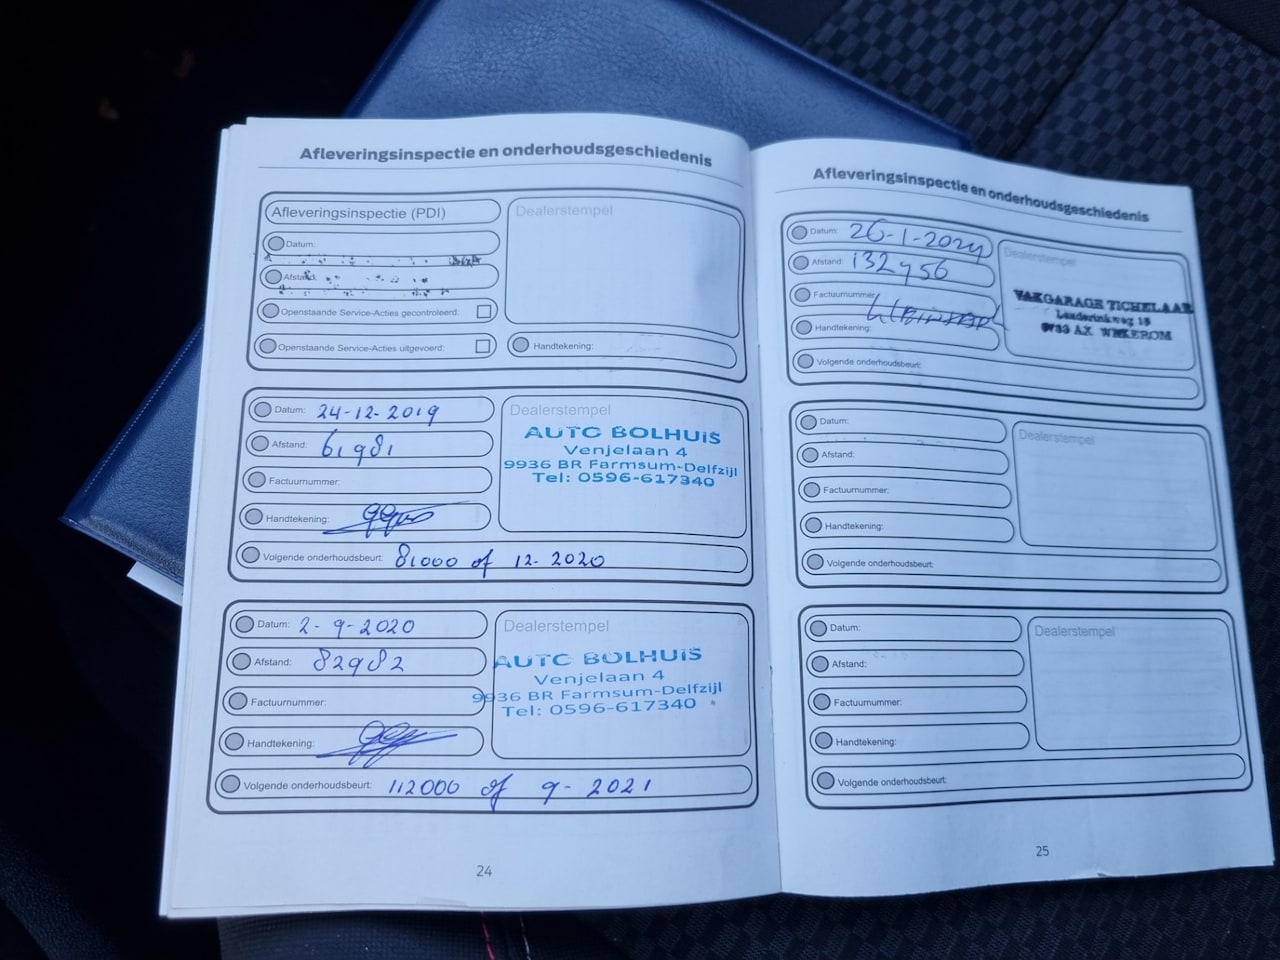 Afleveringsinspectie en onderhoudsgeschiedenis
Afleveringsinspectie (PDI)
Dealerstempel
Datum:
Afstand:
Openstaande Service-Acties gecontroleerd:
Openstaande Service-Acties uitgevoerd:
Handtekening:
Datum: 24-12-2019
Dealerstempel
AUTO BOLHUIS
Venjelaan 4
9936 BR Farmsum-Delfzijl
Tel: 0596-617340
Afstand: 61981
Factuurnummer:
Handtekening:
Volgende onderhoudsbeurt: 81000 of 12-2020
Datum: 2-9-2020
Dealerstempel
AUTO BOLHUIS
Venjelaan 4
9936 BR Farmsum-Delfzijl
Tel: 0596-617340
Afstand: 82982
Factuurnummer:
Handtekening:
Volgende onderhoudsbeurt: 112000 of 9-2021
24
Afleveringsinspectie en onderhoudsgeschiedenis
Datum: 26-1-2024
Dealerstempel
VAKGARAGE TICHELAAR
AX WEKEROM
Afstand: 132456
Factuurnummer:
Handtekening:
Volgende onderhoudsbeurt:
Datum:
Dealerstempel
Afstand:
Factuurnummer:
Handtekening:
Volgende onderhoudsbeurt:
Datum:
Dealerstempel
Afstand:
Factuurnummer:
Handtekening:
Volgende onderhoudsbeurt:
25